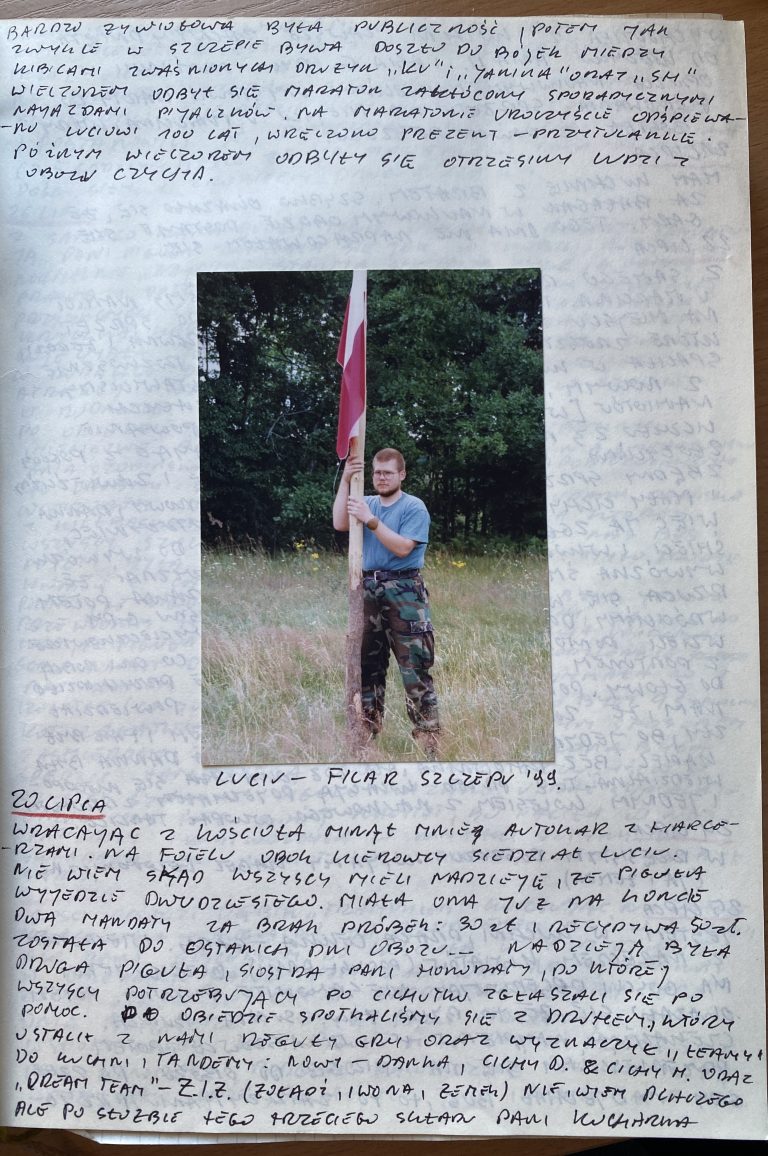 BARDZO ŻYWIOŁOWA BYŁA PUBLICZNOŚĆ, POTEM JAK
ZWYKLE W SZCZEPIE BYWA DOSZŁO DO BÓJEK MIEDZY
KIBICAMI ZWAŚNIONYCH DRUŻYN „KU" i „JANINA" ORAZ „SH"
WIECZOREM ODBYŁ SIĘ MARATON ZAKŁÓCONY SPORADYCZNYMI
NAJAZDAMI PIJACZKÓW. NA MARATONIE UROCZYŚCIE ODŚPIEWA-
-NO LUCIOWI 100 LAT, WRĘCZONO PREZENT – PRZYTULANKĘ.
PÓŹNYM WIECZOREM ODBYŁY SIĘ OTRZĘSINY LUDZI Z
OBOZU CZYCHA.
LUCIU – FILAR SZCZEPU '99.
20 LIPCA
WRACAJĄC Z KOŚCIOŁA MINĄŁ MNIE AUTOKAR Z HARCE-
-RZAMI. NA FOTELU OBOK KIEROWCY SIEDZIAŁ LUCIU.
NIE WIEM SKĄD WSZYSCY MIELI NADZIEJĘ, ŻE PIGUŁA
WYJEDZIE DWUDZIESTEGO. MIAŁA ONA JUŻ NA KONCIE
DWA MANDATY ZA BRAK PRÓBEK: 30 zł i RECYDYWA 50 zł.
ZOSTAŁA DO OSTANICH DNI OBOZU... NADZIEJĄ BYŁA
DRUGA PIGUŁA, SIOSTRA PANI HONORATY, DO KTÓREJ
WSZYSCY POTRZEBUJĄCY PO CICHUTKU ZGŁASZALI SIĘ PO
POMOC. PO OBIEDZIE SPOTKALIŚMY SIĘ Z DRUHEM, KTÓRY
USTALIŁ Z NAMI REGUŁY GRY ORAZ WYZNACZYŁ „TEAMY"
DO KUCHNI, TANDEMY: NOWY – DANKA, CICHY D. & CICHY M. ORAZ
„DREAM TEAM" – Z.I.Z. (ŻOŁĄDŹ, IWONA, ZEMEK) NIE WIEM DLACZEGO
ALE PO SŁUŻBIE TEGO TRZECIEGO SKŁADU PANI KUCHARKA